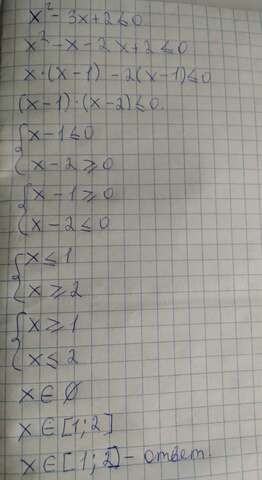 x² - 3x + 2 ≤ 0
x² - x - 2x + 2 ≤ 0
x·(x-1) - 2(x-1) ≤ 0
(x-1)·(x-2) ≤ 0.
{ x - 1 ≤ 0
x - 2 ⩾ 0
{ x - 1 ⩾ 0
x - 2 ≤ 0
{ x ≤ 1
x ⩾ 2
{ x ⩾ 1
x ≤ 2
x ∈ ∅
x ∈ [1; 2]
x ∈ [1; 2] - ответ.